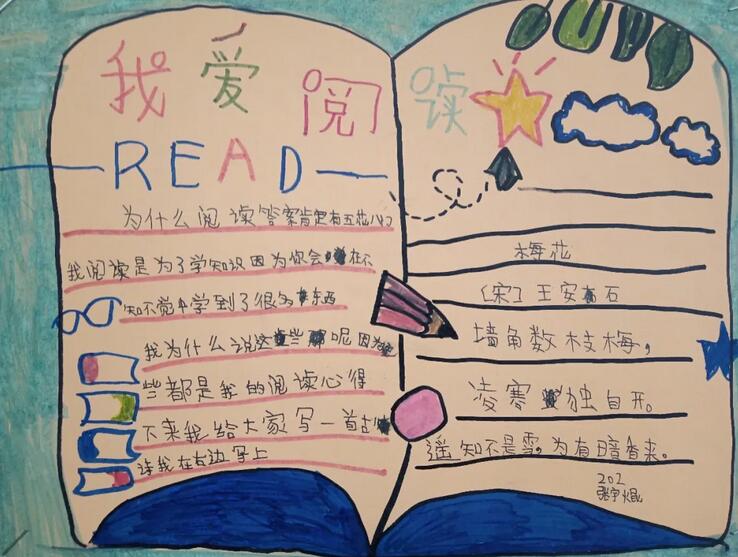 我爱阅读
READ
为什么阅读答案肯定有五花八门
我阅读是为了学知识因为你会在不
知不觉中学到了很多东西
我为什么说这些呢因为这
些都是我的阅读心得
下来我给大家写一首古
诗我在右边写上
梅花
[宋]王安石
墙角数枝梅,
凌寒独自开。
遥知不是雪,为有暗香来。
202